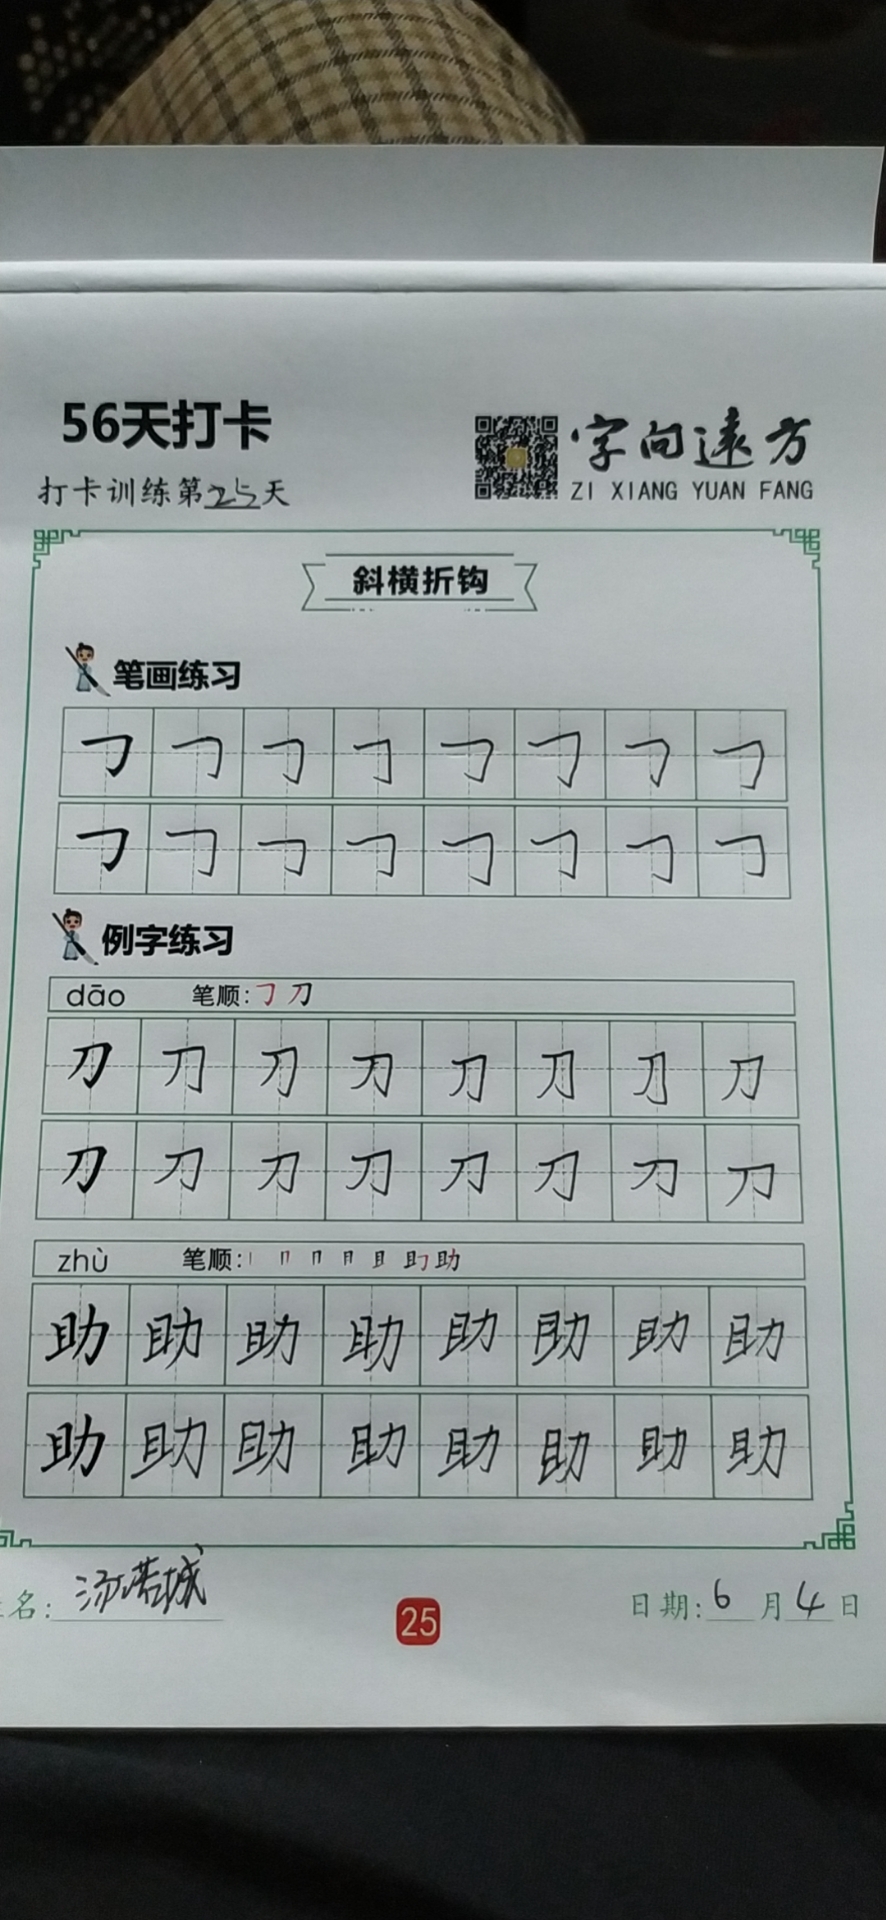 56天打卡
字向远方
打卡训练第25天
ZI XIANG YUAN FANG
斜横折钩
笔画练习
㇆ ㇆ ㇆ ㇆ ㇆ ㇆ ㇆ ㇆
㇆ ㇆ ㇆ ㇆ ㇆ ㇆ ㇆ ㇆
例字练习
dāo 笔顺:㇆ 刀
刀 刀 刀 刀 刀 刀 刀 刀
刀 刀 刀 刀 刀 刀 刀 刀
zhù 笔顺: 助
助 助 助 助 助 助 助 助
助 助 助 助 助 助 助 助
名: 城 日期:6月4日
25